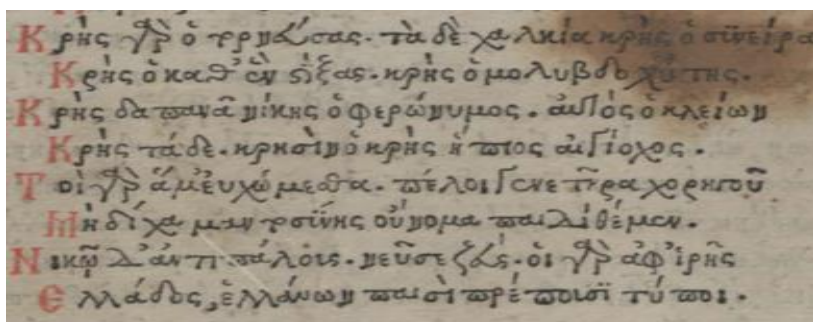 Κρὴς γὰρ ὁ τορνώσας. τὰ δὲ χαλκία κρὴς ὁ συνείρα
Κρὴς ὁ καθ' ἓν στίξας. κρὴς ὁ μολυβδοχύτης.
Κρὴς δαπανᾶ νίκης ὁ φερώνυμος. αὐτὸς ὁ κλείων
Κρὴς τάδε. κρησὶν ὁ κρὴς ἤπιος αἰγίοχος.
Τοὶ γὰρ ἅμ' εὐχώμεθα. πέλοι γενετῆρα χορηγοῦ
Μὴ δίχα μαντοσύνης οὔνομα παιδὶ θέμεν.
Νικῶ δ' ἀντιπάλοις. νεῦσε ζεύς. οἱ γὰρ ἀφ' ἱρῆς
Ελλάδος, ἑλλάνων παισὶ πρέποισϊ τύποι.